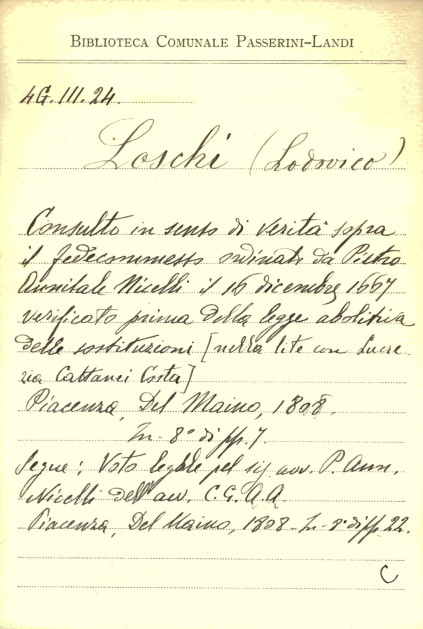 BIBLIOTECA COMUNALE PASSERINI-LANDI
4G.III.24.
Loschi (Lodovico)
Consulto in senso di verità sopra
il fedecommesso ordinato da Pietro
Annibale Nicelli il 16 dicembre 1667
verificato prima della legge abolitiva
delle sostituzioni [nella lite con Lucre
zia Cattanei Costa]
Piacenza, Del Maino, 1808.
In-8° di pp. 7.
Segue: Voto legale pel sig. avv. P. Ann.
Nicelli dell'avv. C.G.A.A.
Piacenza, Del Maino, 1808 - In-8° di pp. 22.
C